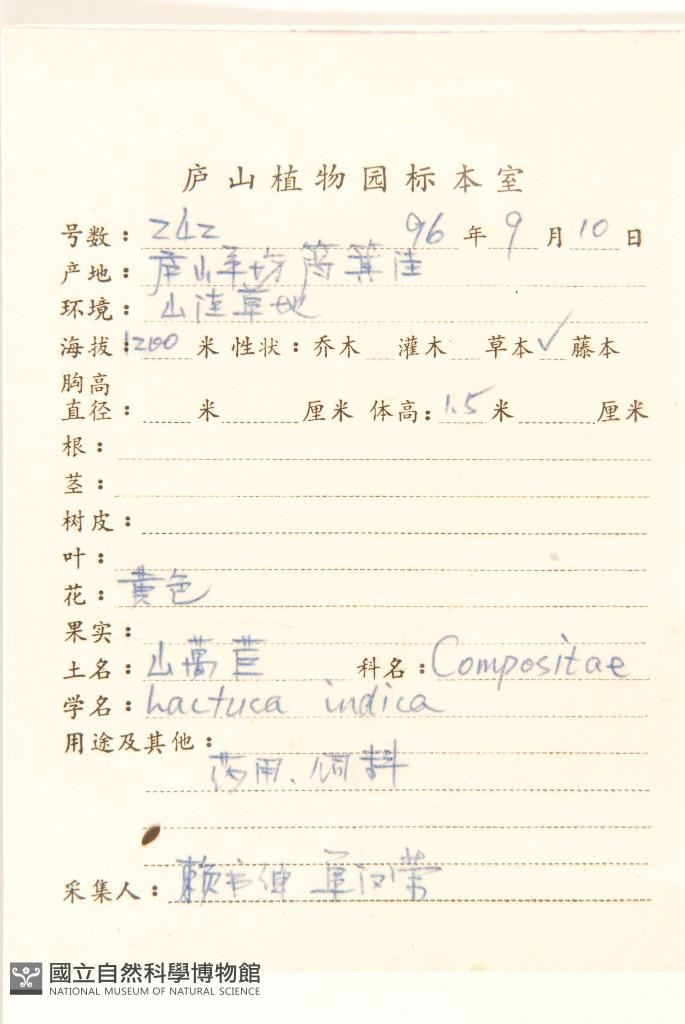 庐山植物园标本室
号数： 96 年 9 月 10 日
产地：庐山羊坊
环境：山洼草地
海拔：1200 米 性状：乔木 灌木 草本 ✓ 藤本
胸高
直径： 米 厘米 体高：1.5 米 厘米
根：
茎：
树皮：
叶：
花：黄色
果实：
土名：山莴苣 科名：Compositae
学名：Lactuca indica
用途及其他：
药用、饲料
采集人：赖书绅 单汉荣
國立自然科學博物館
NATIONAL MUSEUM OF NATURAL SCIENCE